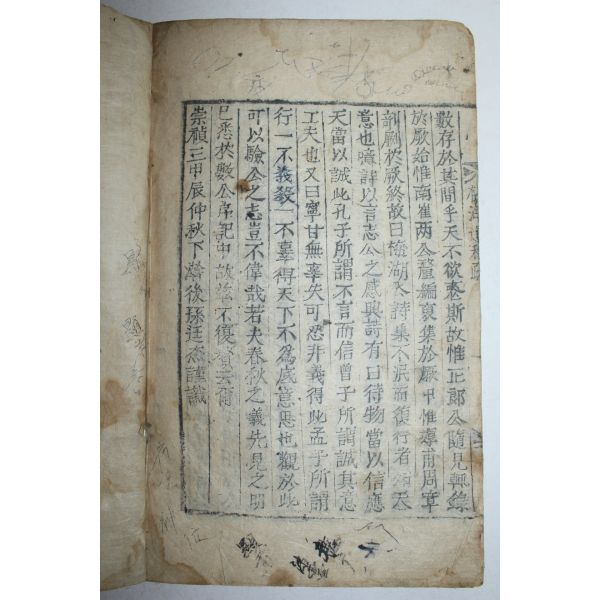 數存於其間乎天不欲喪斯故惟正郎公隨見輒錄
於厥始惟南崔两公釐編裒集於厥中惟尊甫周章
剞劂於厥終故曰 湖 詩集不泯而復行者 天
意也噫詩以言志公之感興詩有曰待物當以信應
天當以誠此孔子所謂不言而信曾子所謂誠其意
工夫也又曰寧甘無辜失可忍非義得此孟子所謂
行一不義殺一不辜得天下不爲底意思也觀於此
可以驗公之志豈不偉哉若夫春秋之義先見之明
已悉於數公序記中故 不復贅云爾
崇禎三甲辰仲秋下澣後孫廷 謹識